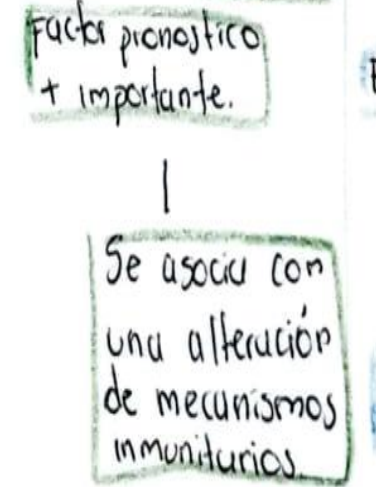 Factor pronostico
+ importante.
Se asocia con
una alteración
de mecanismos
inmunitarios.